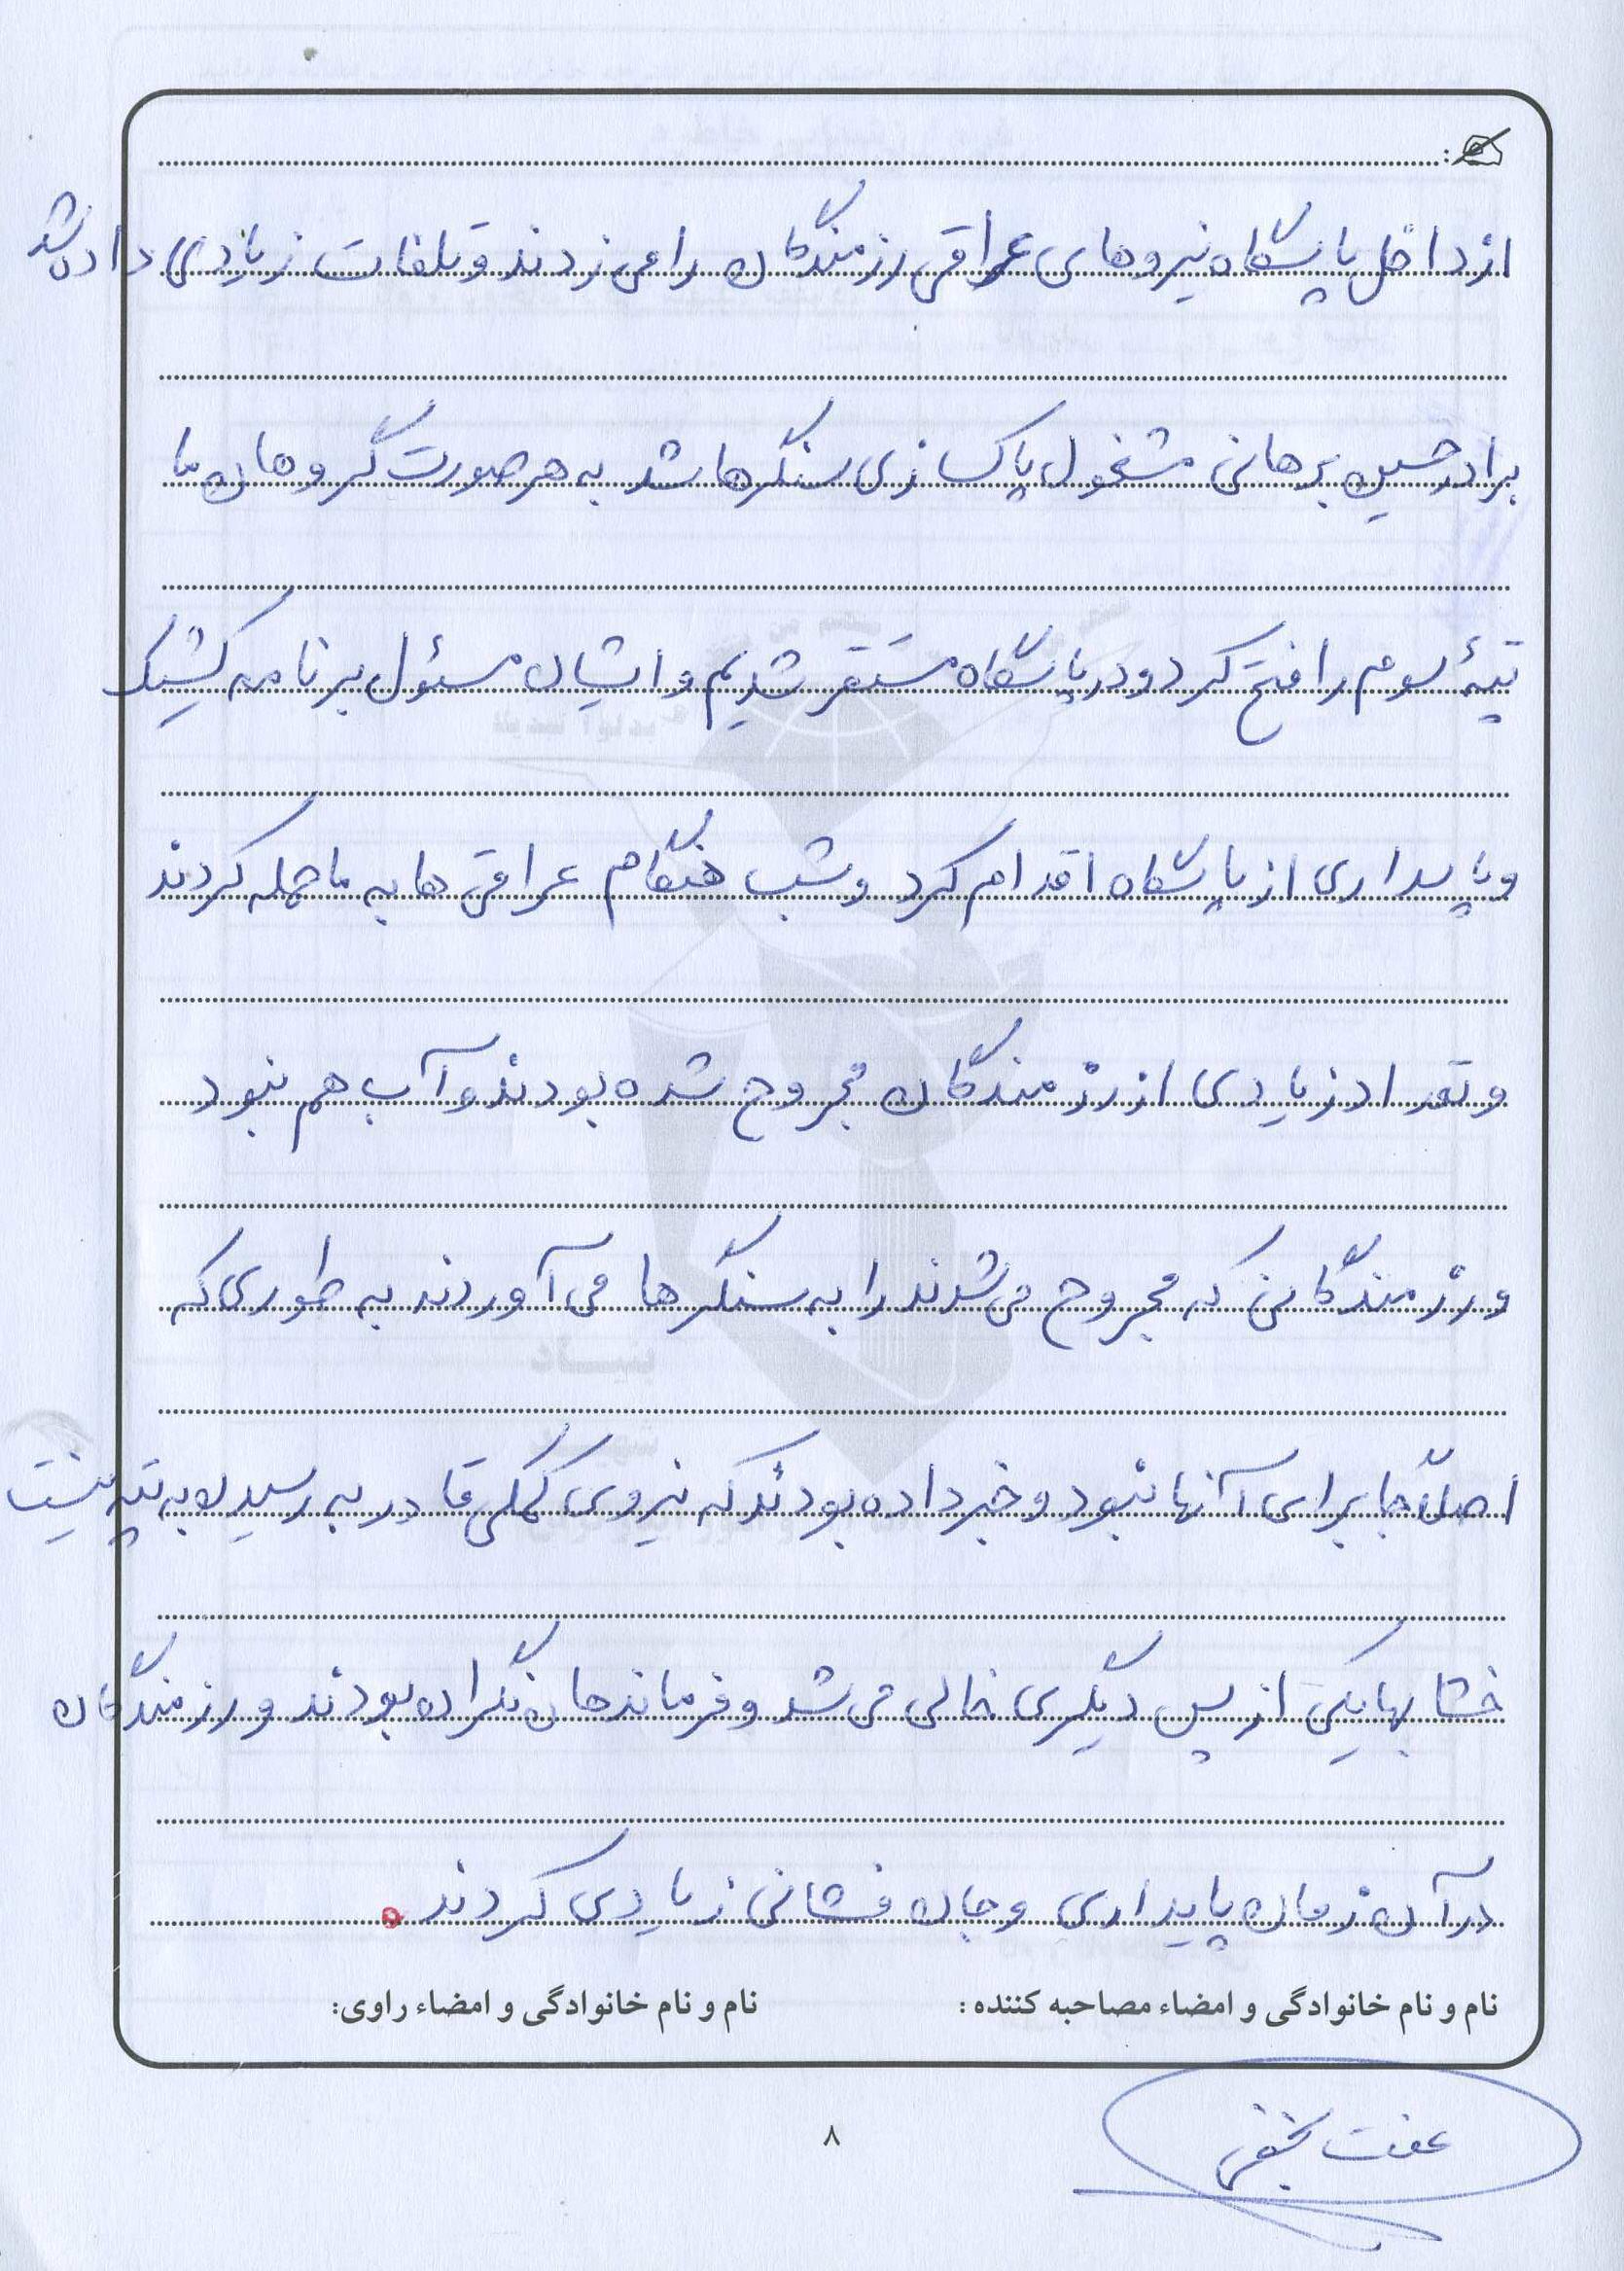 از داخل پایگاه نیروهای عراقی رزمندگان را می زدند و تلفات زیادی داده شد
برادر حسین برهانی مشغول پاکسازی سنگرها شد به هر صورت گروهان ما
تپهٔ سوم را فتح کرد و در پایگاه مستقر شدیم و ایشان مسئول برنامه کشیک
و پاسداری از پایگاه اقدام کرد و شب هنگام عراقی ها به ما حمله کردند
و تعداد زیادی از رزمندگان مجروح شده بودند و آب هم نبود
و رزمندگانی که مجروح می شدند را به سنگرها می آوردند به طوری که
اصلاً جا برای آنها نبود و خبر داده بودند که نیروی کمکی قادر به رسیدن به تپه نیست
خشابها یکی از پس دیگری خالی می شد و فرماندهان نگران بودند و رزمندگان
در آن زمان پایداری و جان فشانی زیادی کردند .
نام و نام خانوادگی و امضاء مصاحبه کننده : نام و نام خانوادگی و امضاء راوی:
عفت
۸